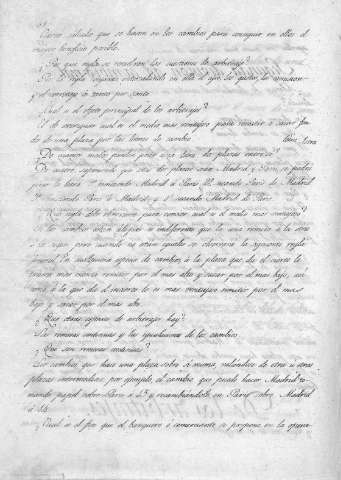 Varios cálculos que se hacen en los cambios para conseguir en ellos el
mayor beneficio posible.
¿Por que regla se resuelven las cuestiones de arbitrage?
Por la regla conjunta introduciendo en ella el tipo los gastos, la comision
y el corretage tanto por ciento.
¿Cual es el objeto principal de los arbitrages?
El de averiguar cual es el medio mas ventajoso para remitir ó sacar fon-
dos de una plaza por las letras de cambio.
¿De cuantos modos puede
De cuatro, suponiendo que estas dos plazas sean Madrid y Paris, se puede
hacer la letra 1º remitiendo Madrid á Paris 2º sacando Paris de Madrid
3º remitiendo Paris á Madrid y 4º sacando Madrid de Paris.
¿Que regla debe observarse para conocer cual es el medio mas ventajoso?
Si los cambios estan iguales es indiferente que la una remita á la otra
ó la saque, pero cuando no estan iguales se observa la siguiente regla
general. En cualquiera especie de cambios, á la plaza que dá el cierto le
tendra mas cuenta remitir por el mas alto y sacar por el mas bajo, asi
como á la que dá el incierto le es mas ventajoso remitir por el mas
bajo y sacar por el mas alto.
¿Que otras especies de arbitrages hay?
Las remesas continuas y las igualaciones de los cambios.
¿Que son remesas continuas?
Los cambios que hace una plaza sobre si misma, valiendose de otra ú otras
plazas intermedias, por ejemplo, el cambio que puede hacer Madrid to-
mando papel sobre Paris á y recambiandole en Paris sobre Madrid
á
¿Cual es el fin que el banquero ó comerciante se propone en la opera-